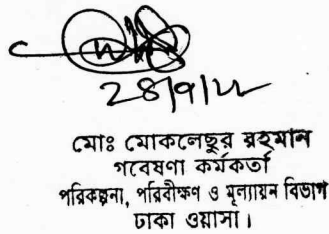 28/9/22
মোঃ মোকলেছুর রহমান
গবেষণা কর্মকর্তা
পরিকল্পনা, পরিবীক্ষণ ও মূল্যায়ন বিভাগ
ঢাকা ওয়াসা।